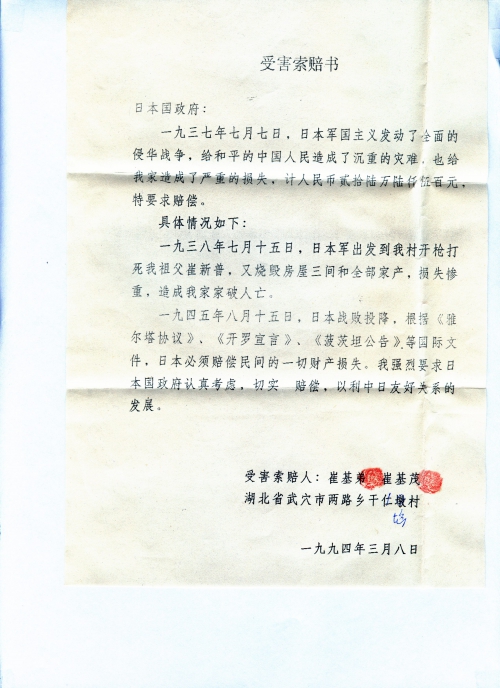 受害索赔书
日本国政府：
一九三七年七月七日，日本军国主义发动了全面的
侵华战争，给和平的中国人民造成了沉重的灾难，也给
我家造成了严重的损失，计人民币贰拾陆万陆仟伍百元，
特要求赔偿。
具体情况如下：
一九三八年七月十五日，日本军出发到我村开枪打
死我祖父崔新普，又烧毁房屋三间和全部家产，损失惨
重，造成我家家破人亡。
一九四五年八月十五日，日本战败投降，根据《雅
尔塔协议》、《开罗宣言》、《波茨坦公告》等国际文
件，日本必须赔偿民间的一切财产损失。我强烈要求日
本国政府认真考虑，切实 赔偿，以利中日友好关系的
发展。
受害索赔人：崔基弟 崔基茂
湖北省武穴市两路乡干仕墩村
一九九四年三月八日